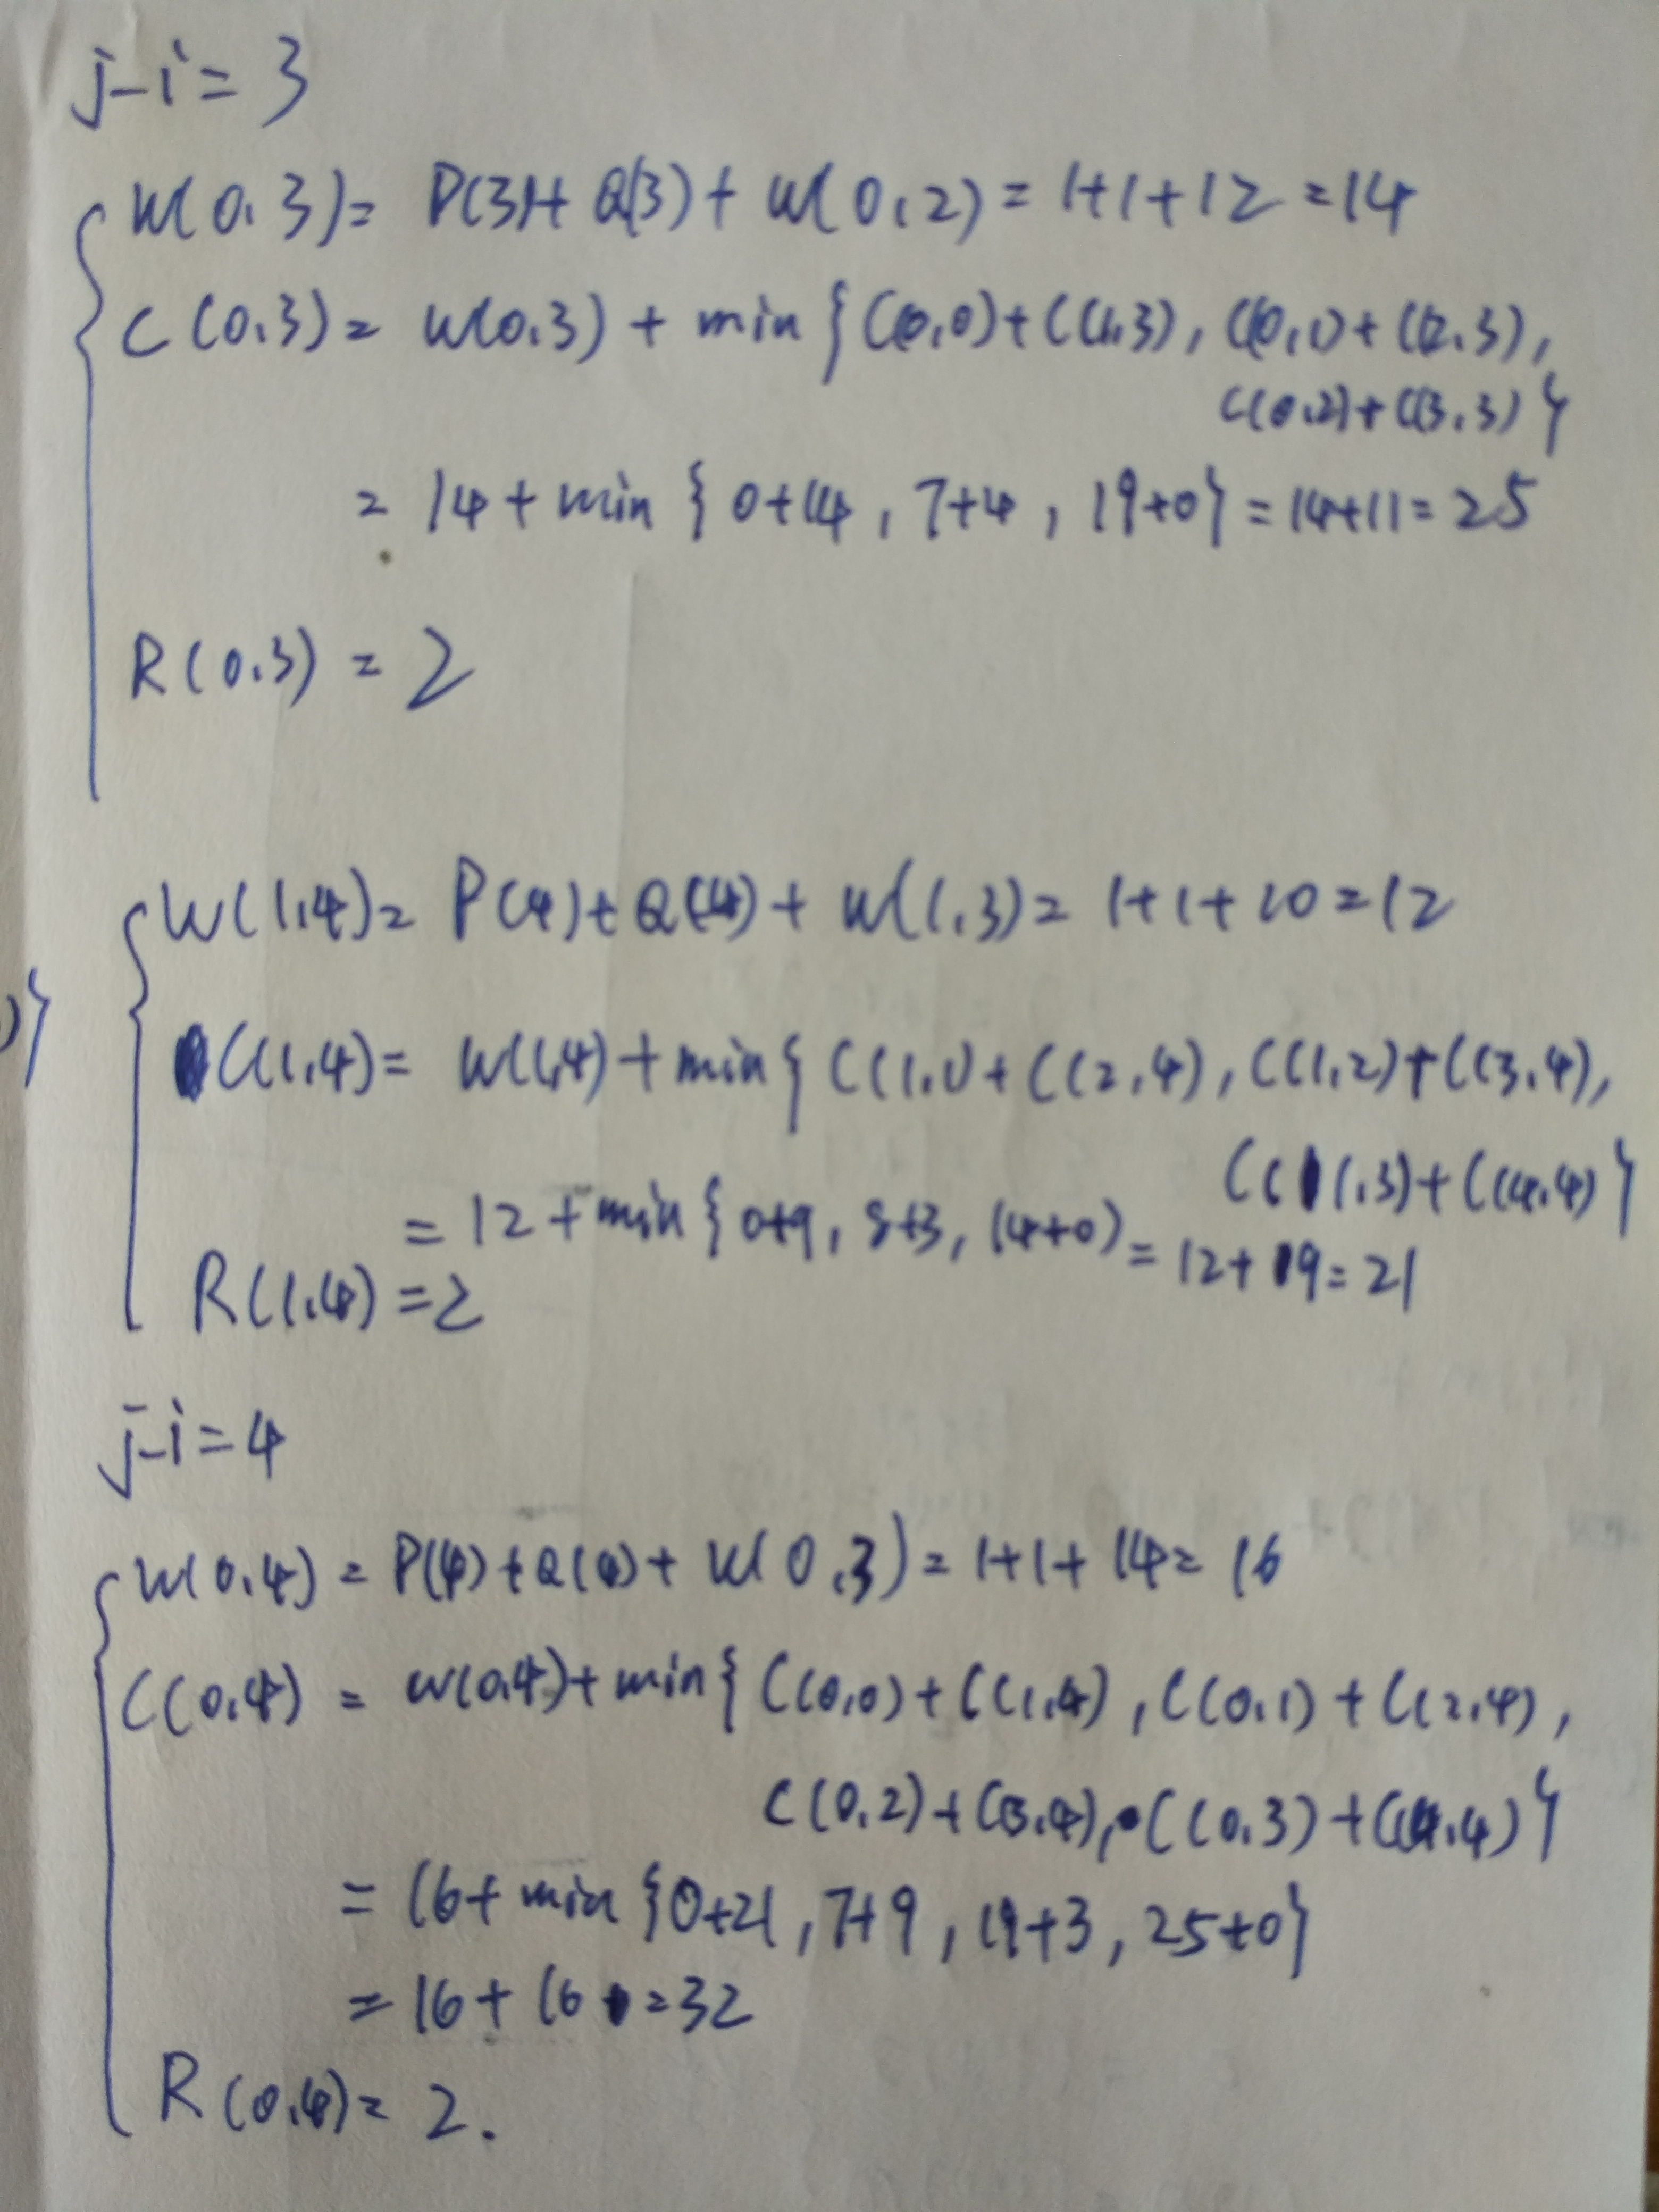 j-i=3
W(0,3)= P(3)+Q(3)+W(0,2)=1+1+12=14
C(0,3)= W(0,3)+min{C(0,0)+C(1,3), C(0,1)+C(2,3),
C(0,2)+C(3,3)}
= 14+min{0+14, 7+4, 19+0}=14+11=25
R(0,3)=2
W(1,4)= P(4)+Q(4)+W(1,3)=1+1+10=12
)}
C(1,4)= W(1,4)+min{C(1,1)+C(2,4), C(1,2)+C(3,4),
C(1,3)+C(4,4)}
=12+min{0+9, 8+3, 14+0)=12+9=21
R(1,4)=2
j-i=4
W(0,4)=P(4)+Q(4)+W(0,3)=1+1+14=16
C(0,4)= W(0,4)+min{C(0,0)+C(1,4), C(0,1)+C(2,4),
C(0,2)+C(3,4), C(0,3)+C(4,4)}
=16+min{0+21, 7+9, 19+3, 25+0}
=16+16=32
R(0,4)=2.